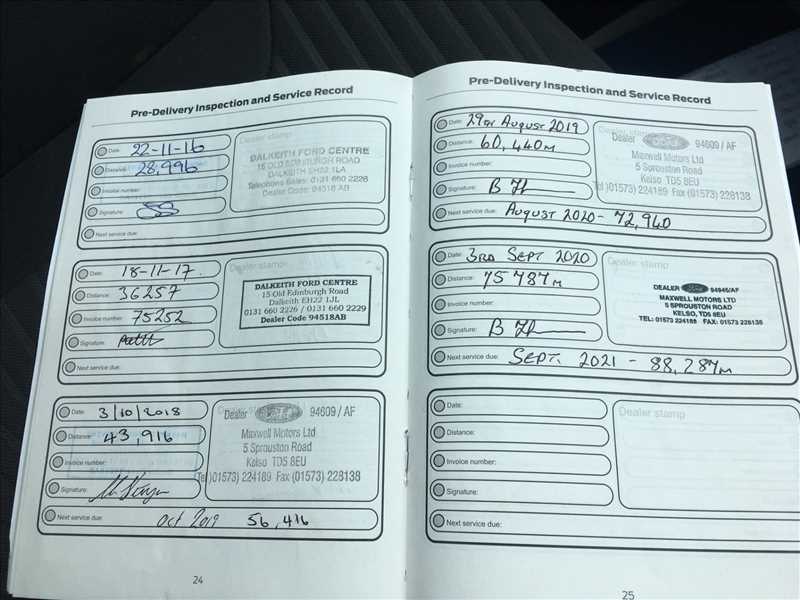 Pre-Delivery Inspection and Service Record
Date: 22-11-16
Distance: 28,996
Invoice number:
Signature:
Next service due:
Dealer stamp
DALKEITH FORD CENTRE
15 OLD EDINBURGH ROAD
DALKEITH EH22 1LA
Telephone Sales: 0131 660 2226
Dealer Code: 94518 AB
Date: 18-11-17.
Distance: 36257
Invoice number: 75252
Signature:
Next service due:
Dealer stamp
DALKEITH FORD CENTRE
15 Old Edinburgh Road
Dalkeith EH22 1JL
0131 660 2226 / 0131 660 2229
Dealer Code 94518AB
Date: 3/10/2018
Distance: 43,916
Invoice number:
Signature:
Next service due: Oct 2019 56,416
Dealer Ford 94609 / AF
Maxwell Motors Ltd
5 Sprouston Road
Kelso TD5 8EU
Tel (01573) 224189 Fax (01573) 228138
24
Pre-Delivery Inspection and Service Record
Date: 29th August 2019
Distance: 60,440m
Invoice number:
Signature: B
Next service due: August 2020 - 72,940
Dealer stamp
Dealer Ford 94609 / AF
Maxwell Motors Ltd
5 Sprouston Road
Kelso TD5 8EU
Tel (01573) 224189 Fax (01573) 228138
Date: 3rd Sept 2020
Distance: 75787m
Invoice number:
Signature: B
Next service due: Sept. 2021 - 88,287m
Dealer stamp
DEALER Ford 94945/AF
MAXWELL MOTORS LTD
5 SPROUSTON ROAD
KELSO, TD5 8EU
TEL: 01573 224189 FAX: 01573 228138
Date:
Distance:
Invoice number:
Signature:
Next service due:
Dealer stamp
25